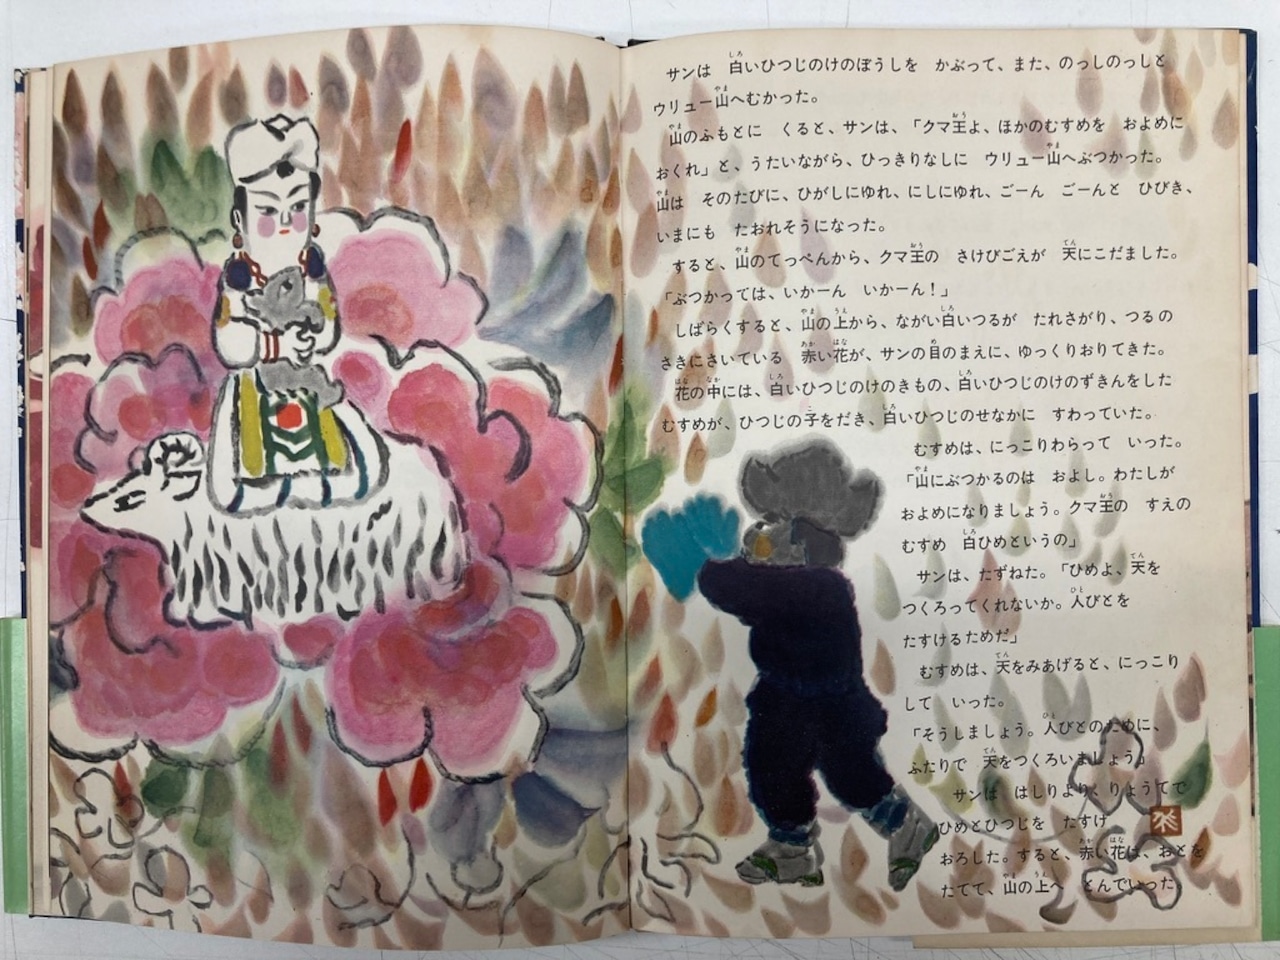 サンは　白いひつじのけのぼうしを　かぶって、また、のっしのっしと
ウリュー山へむかった。
山のふもとに　くると、サンは、「クマ王よ、ほかのむすめを　およめに
おくれ」と、うたいながら、ひっきりなしに　ウリュー山へぶつかった。
山は　そのたびに、ひがしにゆれ、にしにゆれ、ごーん　ごーんと　ひびき、
いまにも　たおれそうになった。
すると、山のてっぺんから、クマ王の　さけびごえが　天にこだました。
「ぶつかっては、いかーん　いかーん！」
しばらくすると、山の上から、ながい白いつるが　たれさがり、つるの
さきにさいている　赤い花が、サンの目のまえに、ゆっくりおりてきた。
花の中には、白いひつじのけのきもの、白いひつじのけのずきんをした
むすめが、ひつじの子をだき、白いひつじのせなかに　すわっていた。
むすめは、にっこりわらって　いった。
「山にぶつかるのは　およし。わたしが
およめになりましょう。クマ王の　すえの
むすめ　白ひめというの」
サンは、たずねた。「ひめよ、天を
つくろってくれないか。人びとを
たすけるためだ」
むすめは、天をみあげると、にっこり
して　いった。
「そうしましょう。人びとのために、
ふたりで　天をつくろいましょう」
サンは　はしりより、りょうてで
ひめとひつじを　たすけ
おろした。すると、赤い花は、おとを
たてて、山の上へ　とんでいった